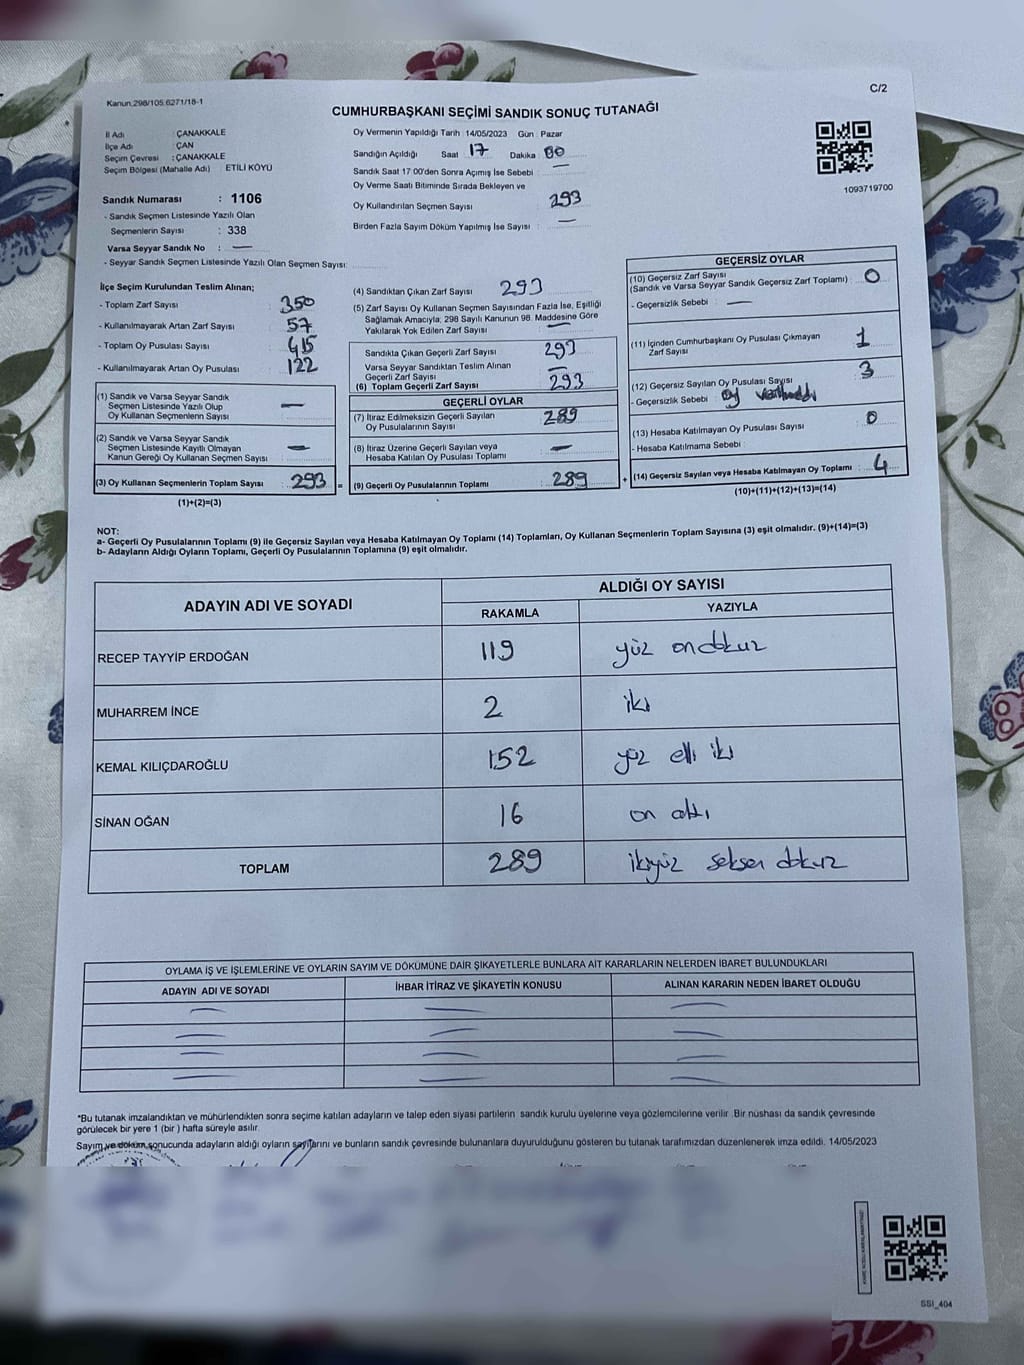 Kanun.298/105.6271/18-1
C/2
CUMHURBAŞKANI SEÇİMİ SANDIK SONUÇ TUTANAĞI
İl Adı : ÇANAKKALE
İlçe Adı : ÇAN
Seçim Çevresi : ÇANAKKALE
Seçim Bölgesi (Mahalle Adı) : ETİLİ KÖYÜ
Sandık Numarası : 1106
- Sandık Seçmen Listesinde Yazılı Olan
Seçmenlerin Sayısı : 338
Varsa Seyyar Sandık No : —
- Seyyar Sandık Seçmen Listesinde Yazılı Olan Seçmen Sayısı:
Oy Vermenin Yapıldığı Tarih : 14/05/2023 Gün : Pazar
Sandığın Açıldığı Saat 17 Dakika 00
Sandık Saat 17 00'den Sonra Açımış İse Sebebi : —
Oy Verme Saati Bitiminde Sırada Bekleyen ve
Oy Kullandırılan Seçmen Sayısı : 293
Birden Fazla Sayım Döküm Yapılmış İse Sayısı : —
1093719700
İlçe Seçim Kurulundan Teslim Alınan;
- Toplam Zarf Sayısı : 350
- Kullanılmayarak Artan Zarf Sayısı : 57
- Toplam Oy Pusulası Sayısı : 415
- Kullanılmayarak Artan Oy Pusulası : 122
(1) Sandık ve Varsa Seyyar Sandık
Seçmen Listesinde Yazılı Olup
Oy Kullanan Seçmenlerin Sayısı : —
(2) Sandık ve Varsa Seyyar Sandık
Seçmen Listesinde Kayıtlı Olmayan
Kanun Gereği Oy Kullanan Seçmen Sayısı : —
(3) Oy Kullanan Seçmenlerin Toplam Sayısı : 293 =
(1)+(2)=(3)
(4) Sandıktan Çıkan Zarf Sayısı : 293
(5) Zarf Sayısı Oy Kullanan Seçmen Sayısından Fazla İse, Eşitliği
Sağlamak Amacıyla; 298 Sayılı Kanunun 98. Maddesine Göre
Yakılarak Yok Edilen Zarf Sayısı : —
Sandıkta Çıkan Geçerli Zarf Sayısı : 293
Varsa Seyyar Sandıktan Teslim Alınan
Geçerli Zarf Sayısı : —
(6) Toplam Geçerli Zarf Sayısı : 293
GEÇERLİ OYLAR
(7) İtiraz Edilmeksizin Geçerli Sayılan
Oy Pusulalarının Sayısı : 289
(8) İtiraz Üzerine Geçerli Sayılan veya
Hesaba Katılan Oy Pusulası Toplamı : —
(9) Geçerli Oy Pusulalarının Toplamı : 289 +
GEÇERSİZ OYLAR
(10) Geçersiz Zarf Sayısı
(Sandık ve Varsa Seyyar Sandık Geçersiz Zarf Toplamı) : 0
- Geçersizlik Sebebi : —
(11) İçinden Cumhurbaşkanı Oy Pusulası Çıkmayan
Zarf Sayısı : 1
(12) Geçersiz Sayılan Oy Pusulası Sayısı : 3
- Geçersizlik Sebebi : oy
(13) Hesaba Katılmayan Oy Pusulası Sayısı : 0
- Hesaba Katılmama Sebebi :
(14) Geçersiz Sayılan veya Hesaba Katılmayan Oy Toplamı : 4
(10)+(11)+(12)+(13)=(14)
NOT:
a- Geçerli Oy Pusulalarının Toplamı (9) ile Geçersiz Sayılan veya Hesaba Katılmayan Oy Toplamı (14) Toplamları, Oy Kullanan Seçmenlerin Toplam Sayısına (3) eşit olmalıdır. (9)+(14)=(3)
b- Adayların Aldığı Oyların Toplamı, Geçerli Oy Pusulalarının Toplamına (9) eşit olmalıdır.
ADAYIN ADI VE SOYADI ALDIĞI OY SAYISI
RAKAMLA YAZIYLA
RECEP TAYYİP ERDOĞAN 119 yüz ondokuz
MUHARREM İNCE 2 iki
KEMAL KILIÇDAROĞLU 152 yüz elli iki
SİNAN OĞAN 16 on altı
TOPLAM 289 ikiyüz seksen dokuz
OYLAMA İŞ VE İŞLEMLERİNE VE OYLARIN SAYIM VE DÖKÜMÜNE DAİR ŞİKAYETLERLE BUNLARA AİT KARARLARIN NELERDEN İBARET BULUNDUKLARI
ADAYIN ADI VE SOYADI İHBAR İTİRAZ VE ŞİKAYETİN KONUSU ALINAN KARARIN NEDEN İBARET OLDUĞU
*Bu tutanak imzalandıktan ve mühürlendikten sonra seçime katılan adayların ve talep eden siyasi partilerin sandık kurulu üyelerine veya gözlemcilerine verilir .Bir nüshası da sandık çevresinde
görülecek bir yere 1 (bir ) hafta süreyle asılır.
Sayım ve döküm sonucunda adayların aldığı oyların sayılarını ve bunların sandık çevresinde bulunanlara duyurulduğunu gösteren bu tutanak tarafımızdan düzenlenerek imza edildi. 14/05/2023
SSI_404